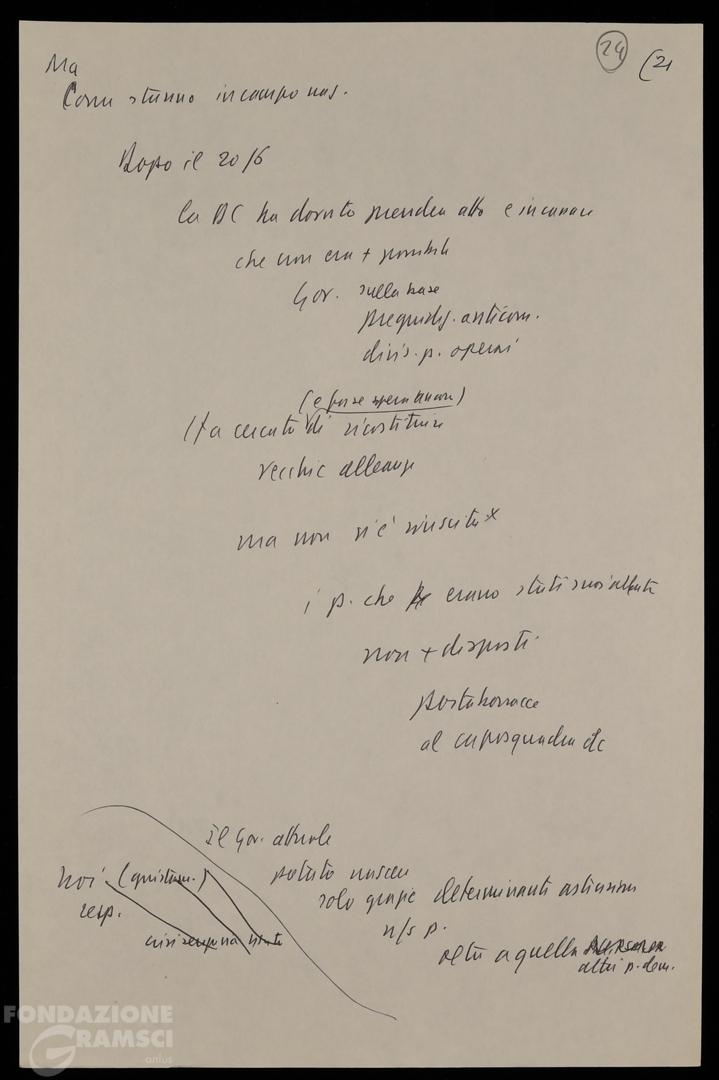 24 (21
Ma
Come stanno in campo naz.
Dopo il 20/6
la DC ha dovuto prendere atto e incassare
che non era + possibile
Gov. sulla base
pregiudiz. anticom.
divis. p. operai
(e forse spera ancora)
Ha cercato di ricostituire
vecchie alleanze
ma non vi è riuscita x
i p. che erano stati suoi alleati
non + disposti
portaborracce
al caposquadra dc
il Gov. attuale
potuto nascere
solo grazie determinante astensione
n/s p.
oltre a quella
altri p. dem.
noi (giustam.)
resp.
FONDAZIONE
GRAMSCI
onlus